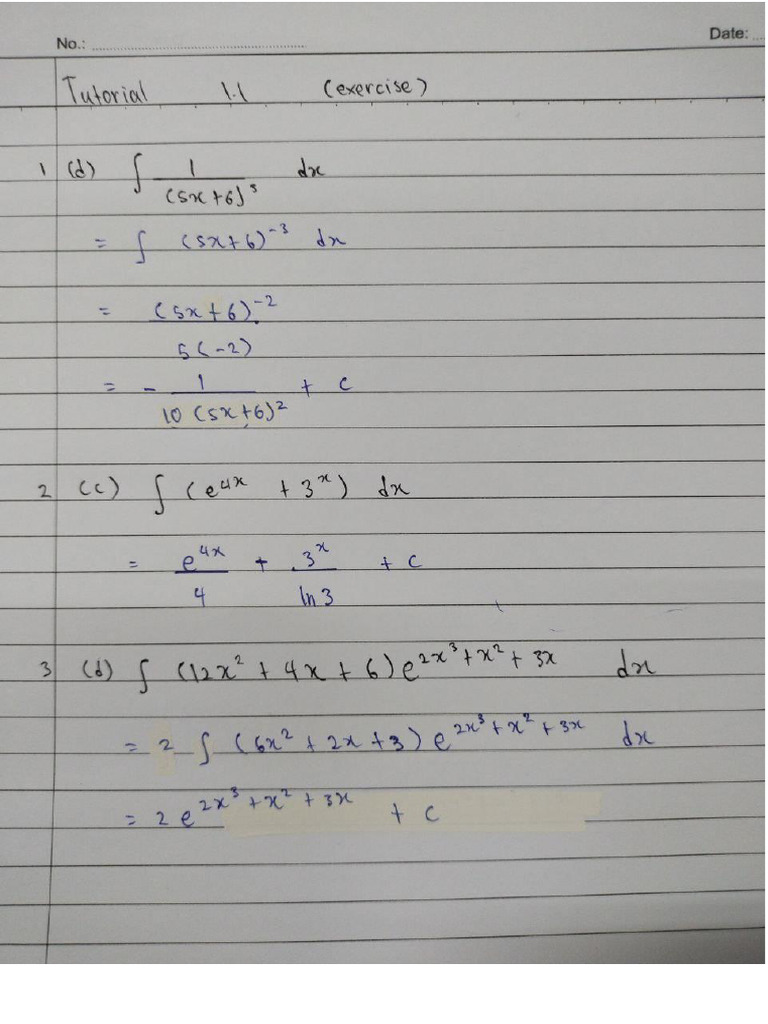 No.: Date:
Tutorial 1.1 (exercise)
1 (d) ∫ 1/(5x+6)³ dx
= ∫ (5x+6)⁻³ dx
= (5x+6)⁻²/5(-2)
= - 1/10(5x+6)² + c
2 (c) ∫ (e⁴ˣ + 3ˣ) dx
= e⁴ˣ/4 + 3ˣ/ln 3 + c
3 (d) ∫ (12x² + 4x + 6)e^2x³+x²+3x dx
= 2 ∫ (6x² + 2x + 3) e^2x³+x²+3x dx
= 2e^2x³+x²+3x + c